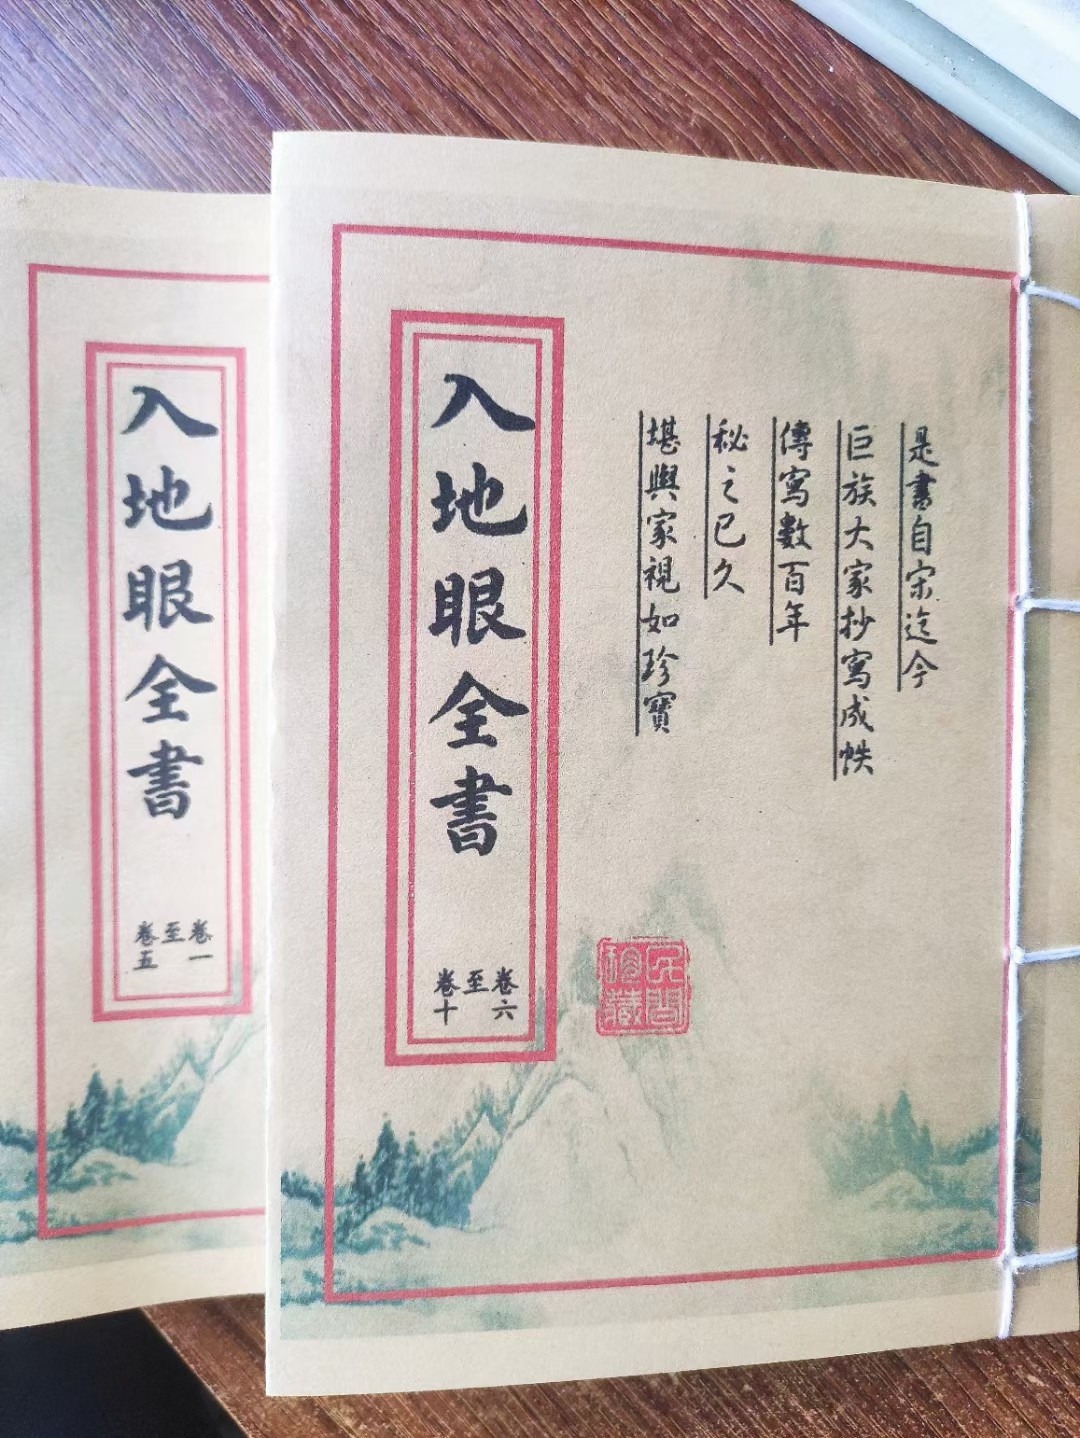 是書自宋迄今
巨族大家抄寫成帙
傳寫數百年
秘之已久
堪輿家視如珍寶
入地眼全書
卷六
至
卷十
民間
珍藏
入地眼全書
卷一
至
卷五